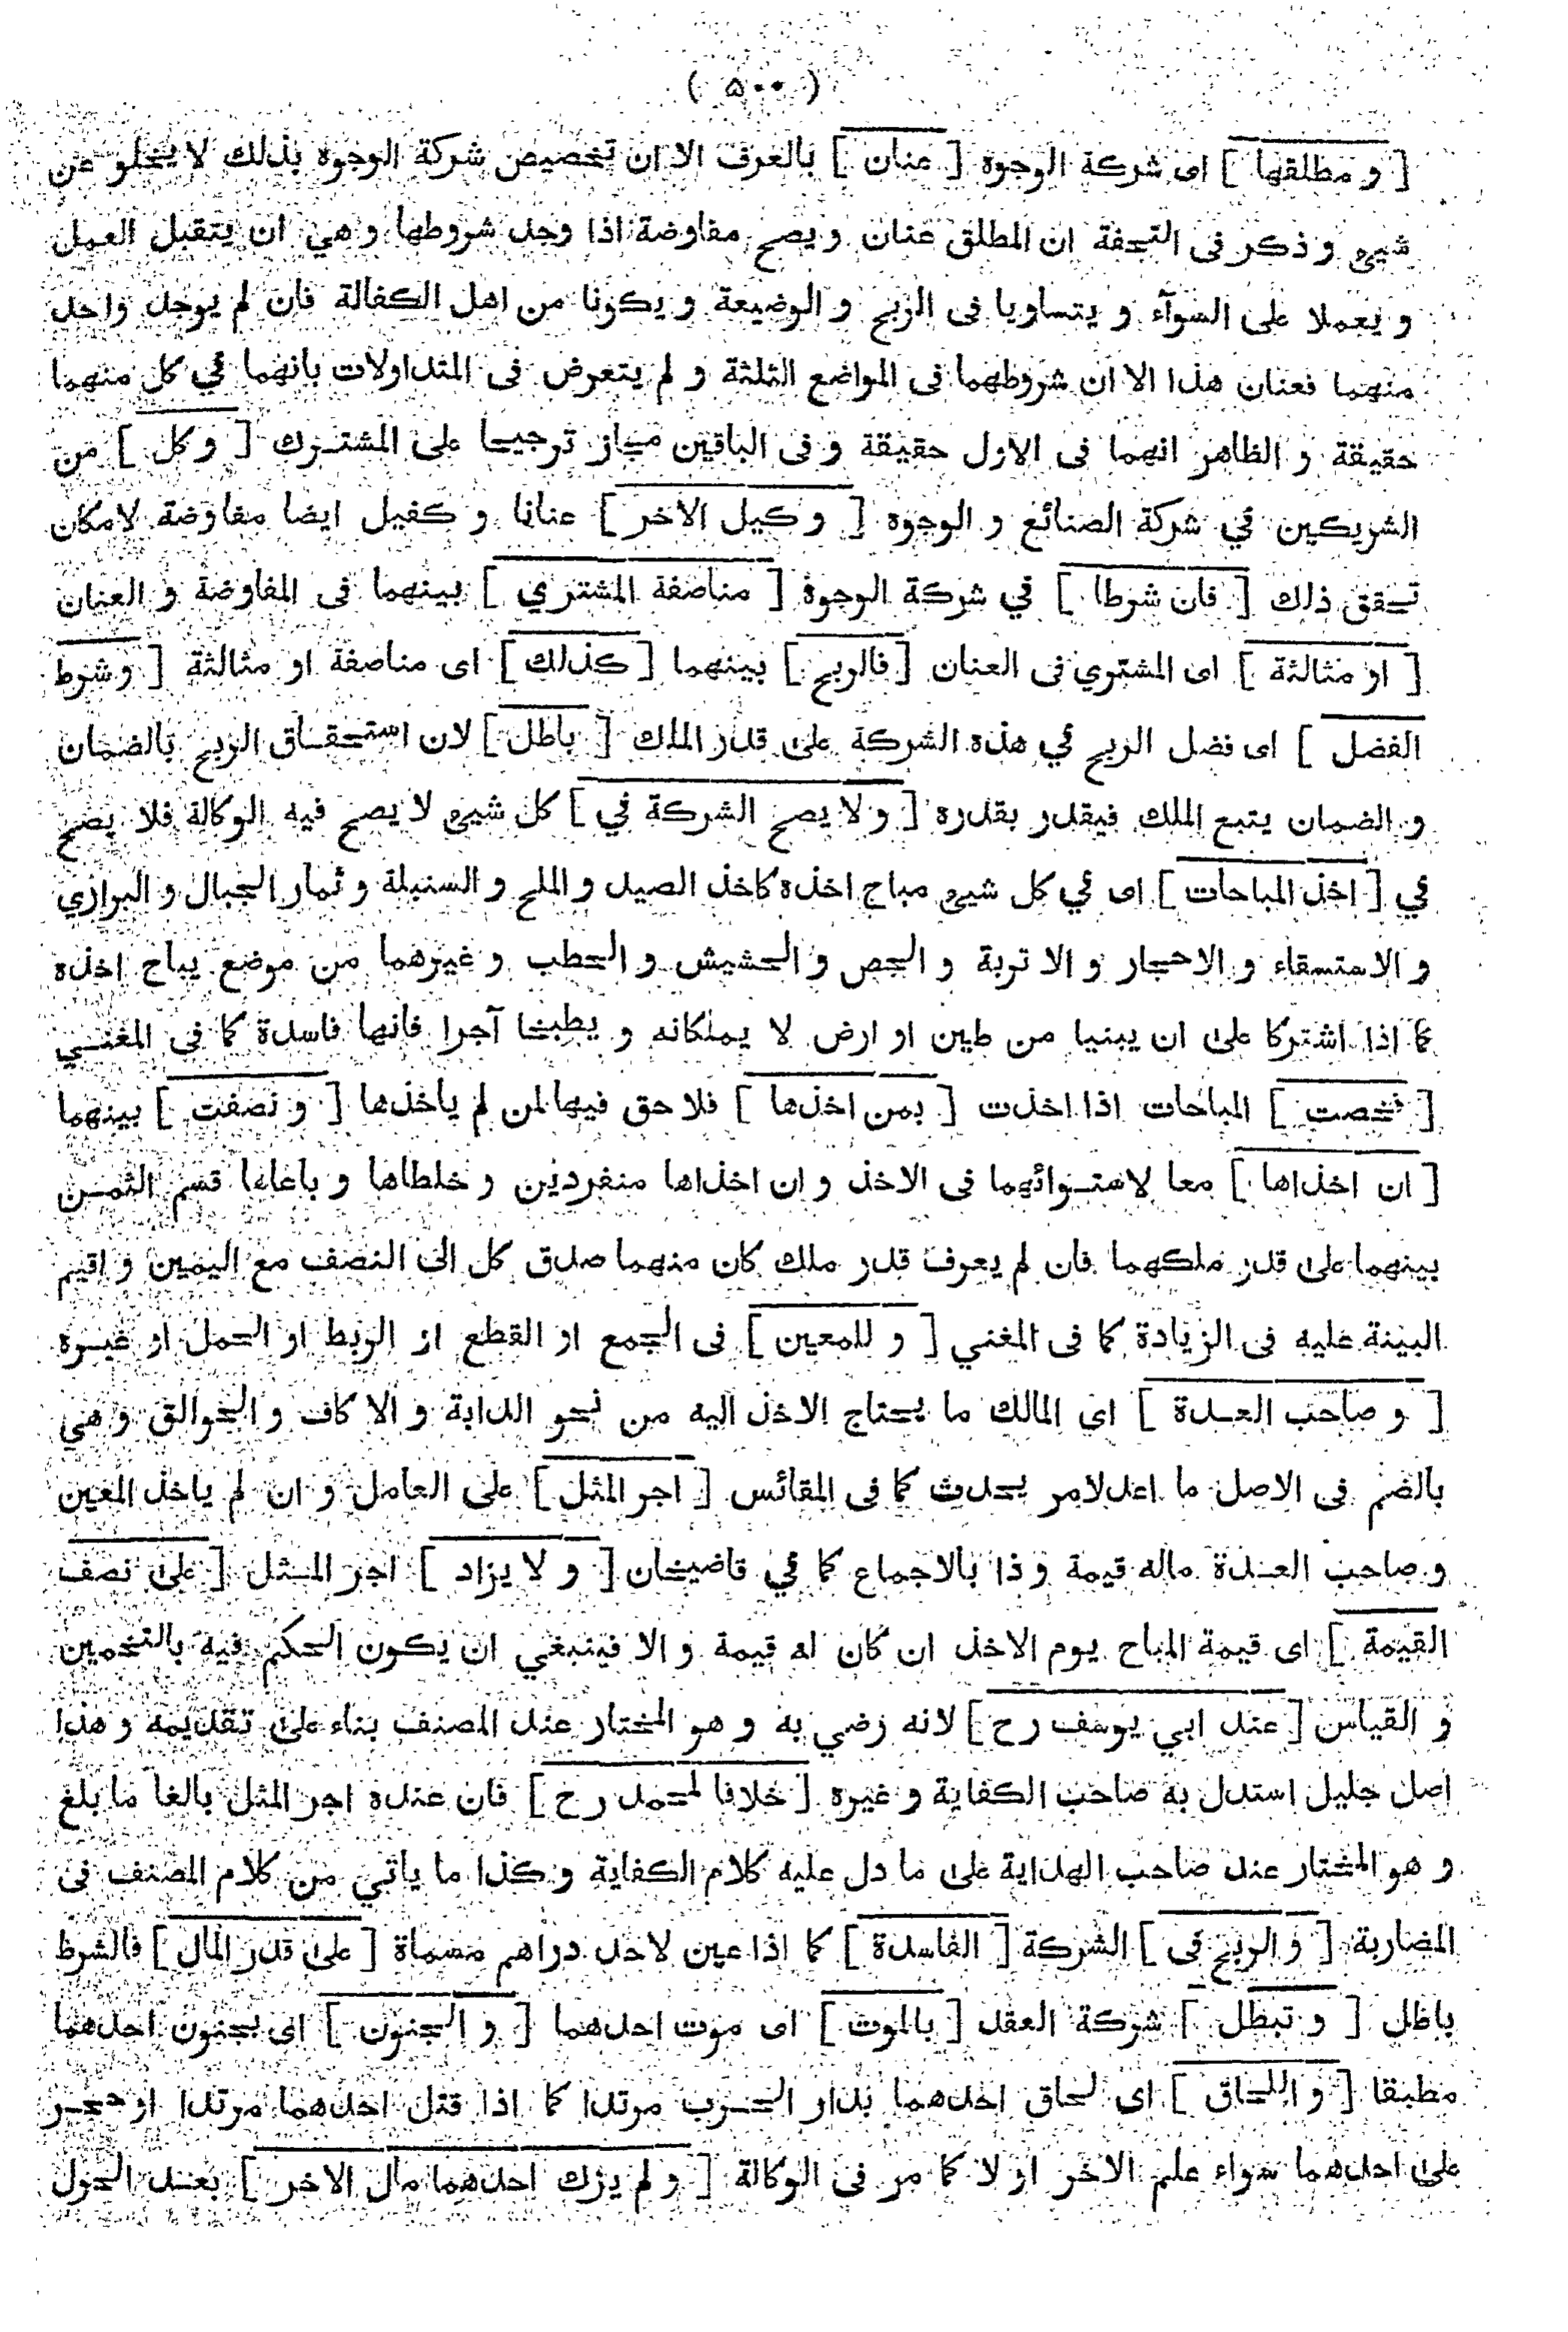 ( ۵۰۰ )
[ و مطلقها ] اى شركة الوجوه [ عنان ] بالعرف الا ان تخصيص شركة الوجوه بذلك لا يخلو عن
شيئ و ذكر فى التحفة ان المطلق عنان و يصح مفاوضة اذا وجد شروطها و هي ان يتقبل العمل
و يعملا على السوآء و يتساويا فى الربح و الوضيعة و يكونا من اهل الكفالة فان لم يوجد واحد
منهما فعنان هذا الا ان شروطهما فى المواضع الثلثة و لم يتعرض فى المتداولات بانهما في كل منهما
حقيقة و الظاهر انهما فى الاول حقيقة و فى الباقين مجاز ترجيحا على المشترك [ و كل ] من
الشريكين في شركة الصنائع و الوجوه [ و كيل الاخر ] عنانا و كفيل ايضا مفاوضة لامكان
تحقق ذلك [ فان شرطا ] في شركة الوجوه [ مناصفة المشتري ] بينهما فى المفاوضة و العنان
[ او مثالثة ] اى المشتري فى العنان [ فالربح ] بينهما [ كذلك ] اى مناصفة او مثالثة [ و شرط
الفضل ] اى فضل الربح في هذه الشركة على قدر الملك [ باطل ] لان استحقاق الربح بالضمان
و الضمان يتبع الملك فيقدر بقدره [ و لا يصح الشركة في ] كل شيئ لا يصح فيه الوكالة فلا يصح
في [ اخذ المباحات ] اى في كل شيئ مباح اخذه كاخذ الصيد و الملح و السنبلة و ثمار الجبال و البراري
و الاستسقاء و الاحجار و الا تربة و الجص و الحشيش و الحطب و غيرهما من موضع يباح اخذه
كما اذا اشتركا على ان يبنيا من طين او ارض لا يملكانه و يطبخا آجرا فانها فاسدة كما فى المغنــي
[ فخصت ] المباحات اذا اخذت [ بمن اخذها ] فلا حق فيها لمن لم ياخذها [ و نصفت ] بينهما
[ ان اخذاها ] معا لاستوائهما فى الاخذ و ان اخذاها منفردين و خلطاها و باعاها قسم الثمن
بينهما على قدر ملكهما فان لم يعرف قدر ملك كان منهما صدق كل الى النصف مع اليمين و اقيم
البينة عليه فى الزيادة كما فى المغني [ و للمعين ] فى الجمع او القطع او الربط او الحمل او غيره
[ و صاحب العدة ] اى المالك ما يحتاج الاخذ اليه من نحو الدابة و الا كاف و الجوالق و هي
بالضم فى الاصل ما اعد لامر يحدث كما فى المقائس [ اجر المثل ] على العامل و ان لم ياخذ المعين
و صاحب العدة ماله قيمة و ذا بالاجماع كما في قاضيخان [ و لا يزاد ] اجر المثل [ على نصف
القيمة ] اى قيمة المباح يوم الاخذ ان كان له قيمة و الا فينبغي ان يكون الحكم فيه بالتخمين
و القياس [ عند ابي يوسف رح ] لانه رضي به و هو المختار عند المصنف بناء على تقديمه و هذا
اصل جليل استدل به صاحب الكفاية و غيره [ خلافا لمحمد رح ] فان عنده اجر المثل بالغا ما بلغ
و هو المختار عند صاحب الهداية على ما دل عليه كلام الكفاية و كذا ما ياتي من كلام المصنف فى
المضاربة [ و الربح فى ] الشركة [ الفاسدة ] كما اذا عين لاحد دراهم مسماة [ على قدر المال ] فالشرط
باطل [ و تبطل ] شركة العقد [ بالموت ] اى موت احدهما [ و الجنون ] اى بجنون احدهما
مطبقا [ و اللحاق ] اى لحاق احدهما بدار الحرب مرتدا كما اذا قتل احدهما مرتدا او حجر
على احدهما سواء علم الاخر او لا كما مر فى الوكالة [ و لم يزك احدهما مال الاخر ] بعد الحول